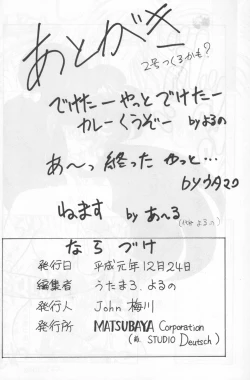 あとがき
2号つくるかも?
でけたーやっとでけたー
カレーくうぞー by よるの
あ〜っ 終った やっと…
by ウタマロ
ねます by あ〜る
(代筆 よるの)
ならづけ
発行日 平成元年12月24日
編集者 うたまろ. よるの
発行人 John 梅川
発行所 MATSUBAYA Corporation
( STUDIO Deutsch)